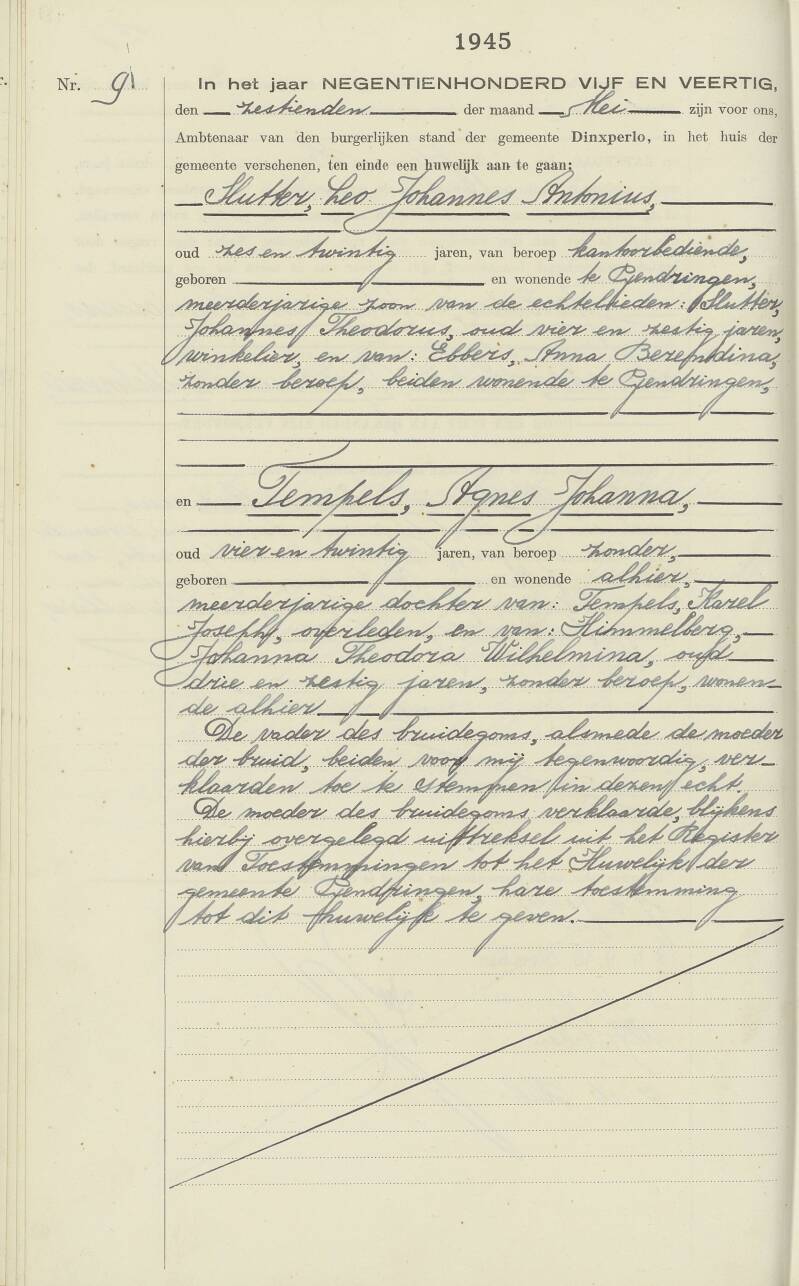 1945
Nr. 9
In het jaar NEGENTIENHONDERD VIJF EN VEERTIG,
den zestienden der maand Mei zijn voor ons,
Ambtenaar van den burgerlijken stand der gemeente Dinxperlo, in het huis der
gemeente verschenen, ten einde een huwelijk aan te gaan:
Slutter, Leo Johannes Antonius,
oud zes en twintig jaren, van beroep kantoorbediende,
geboren en wonende te Gendringen,
meerderjarige zoon van de echtelieden: Slutter,
Johannes Theodorus, oud vier en zestig jaren,
winkelier, en van: Ebbers, Anna Berendina,
zonder beroep, beiden wonende te Gendringen,
en Tempels, Agnes Johanna,
oud vier en twintig jaren, van beroep zonder,
geboren en wonende alhier,
meerderjarige dochter van: Tempels, Karel
Joseph, overleden, en van: Himmelberg,
Johanna Theodora Wilhelmina, oud
drie en zestig jaren, zonder beroep, wonen-
de alhier
De vader des bruidegoms, alsmede de moeder
der bruid, beiden voor mij tegenwoordig, ver-
klaarden toe te stemmen in dezen echt.
De moeder des bruidegoms verklaarde, blijkens
hierbij overgelegd uittreksel uit het Register
van Toestemmingen tot het Huwelijk der
gemeente Gendringen, hare toestemming
tot dit huwelijk te geven.